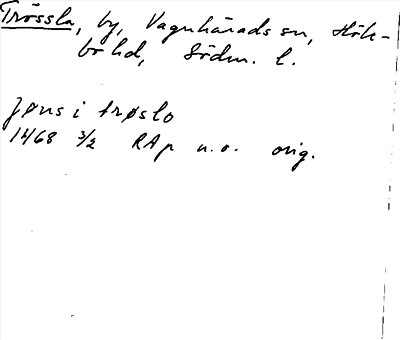 Trössla, by, Vagnhärads sn, Höle-
bo hd, Södm. l.
Jøns i trøslo
1468 3/2 RAp u.o. orig.